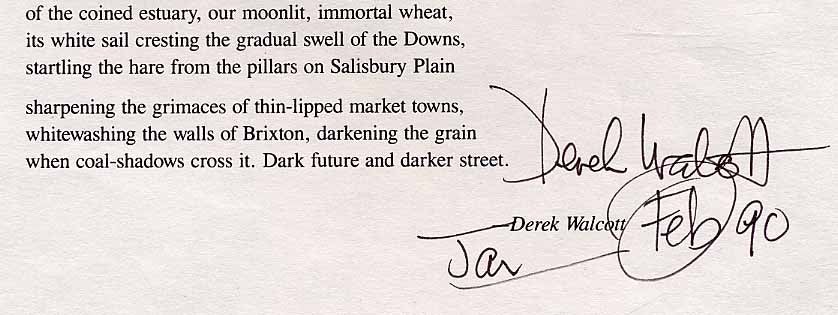 of the coined estuary, our moonlit, immortal wheat,
its white sail cresting the gradual swell of the Downs,
startling the hare from the pillars on Salisbury Plain
sharpening the grimaces of thin-lipped market towns,
whitewashing the walls of Brixton, darkening the grain
when coal-shadows cross it. Dark future and darker street.
Derek Walcott
—Derek Walcott
Jan Feb 90